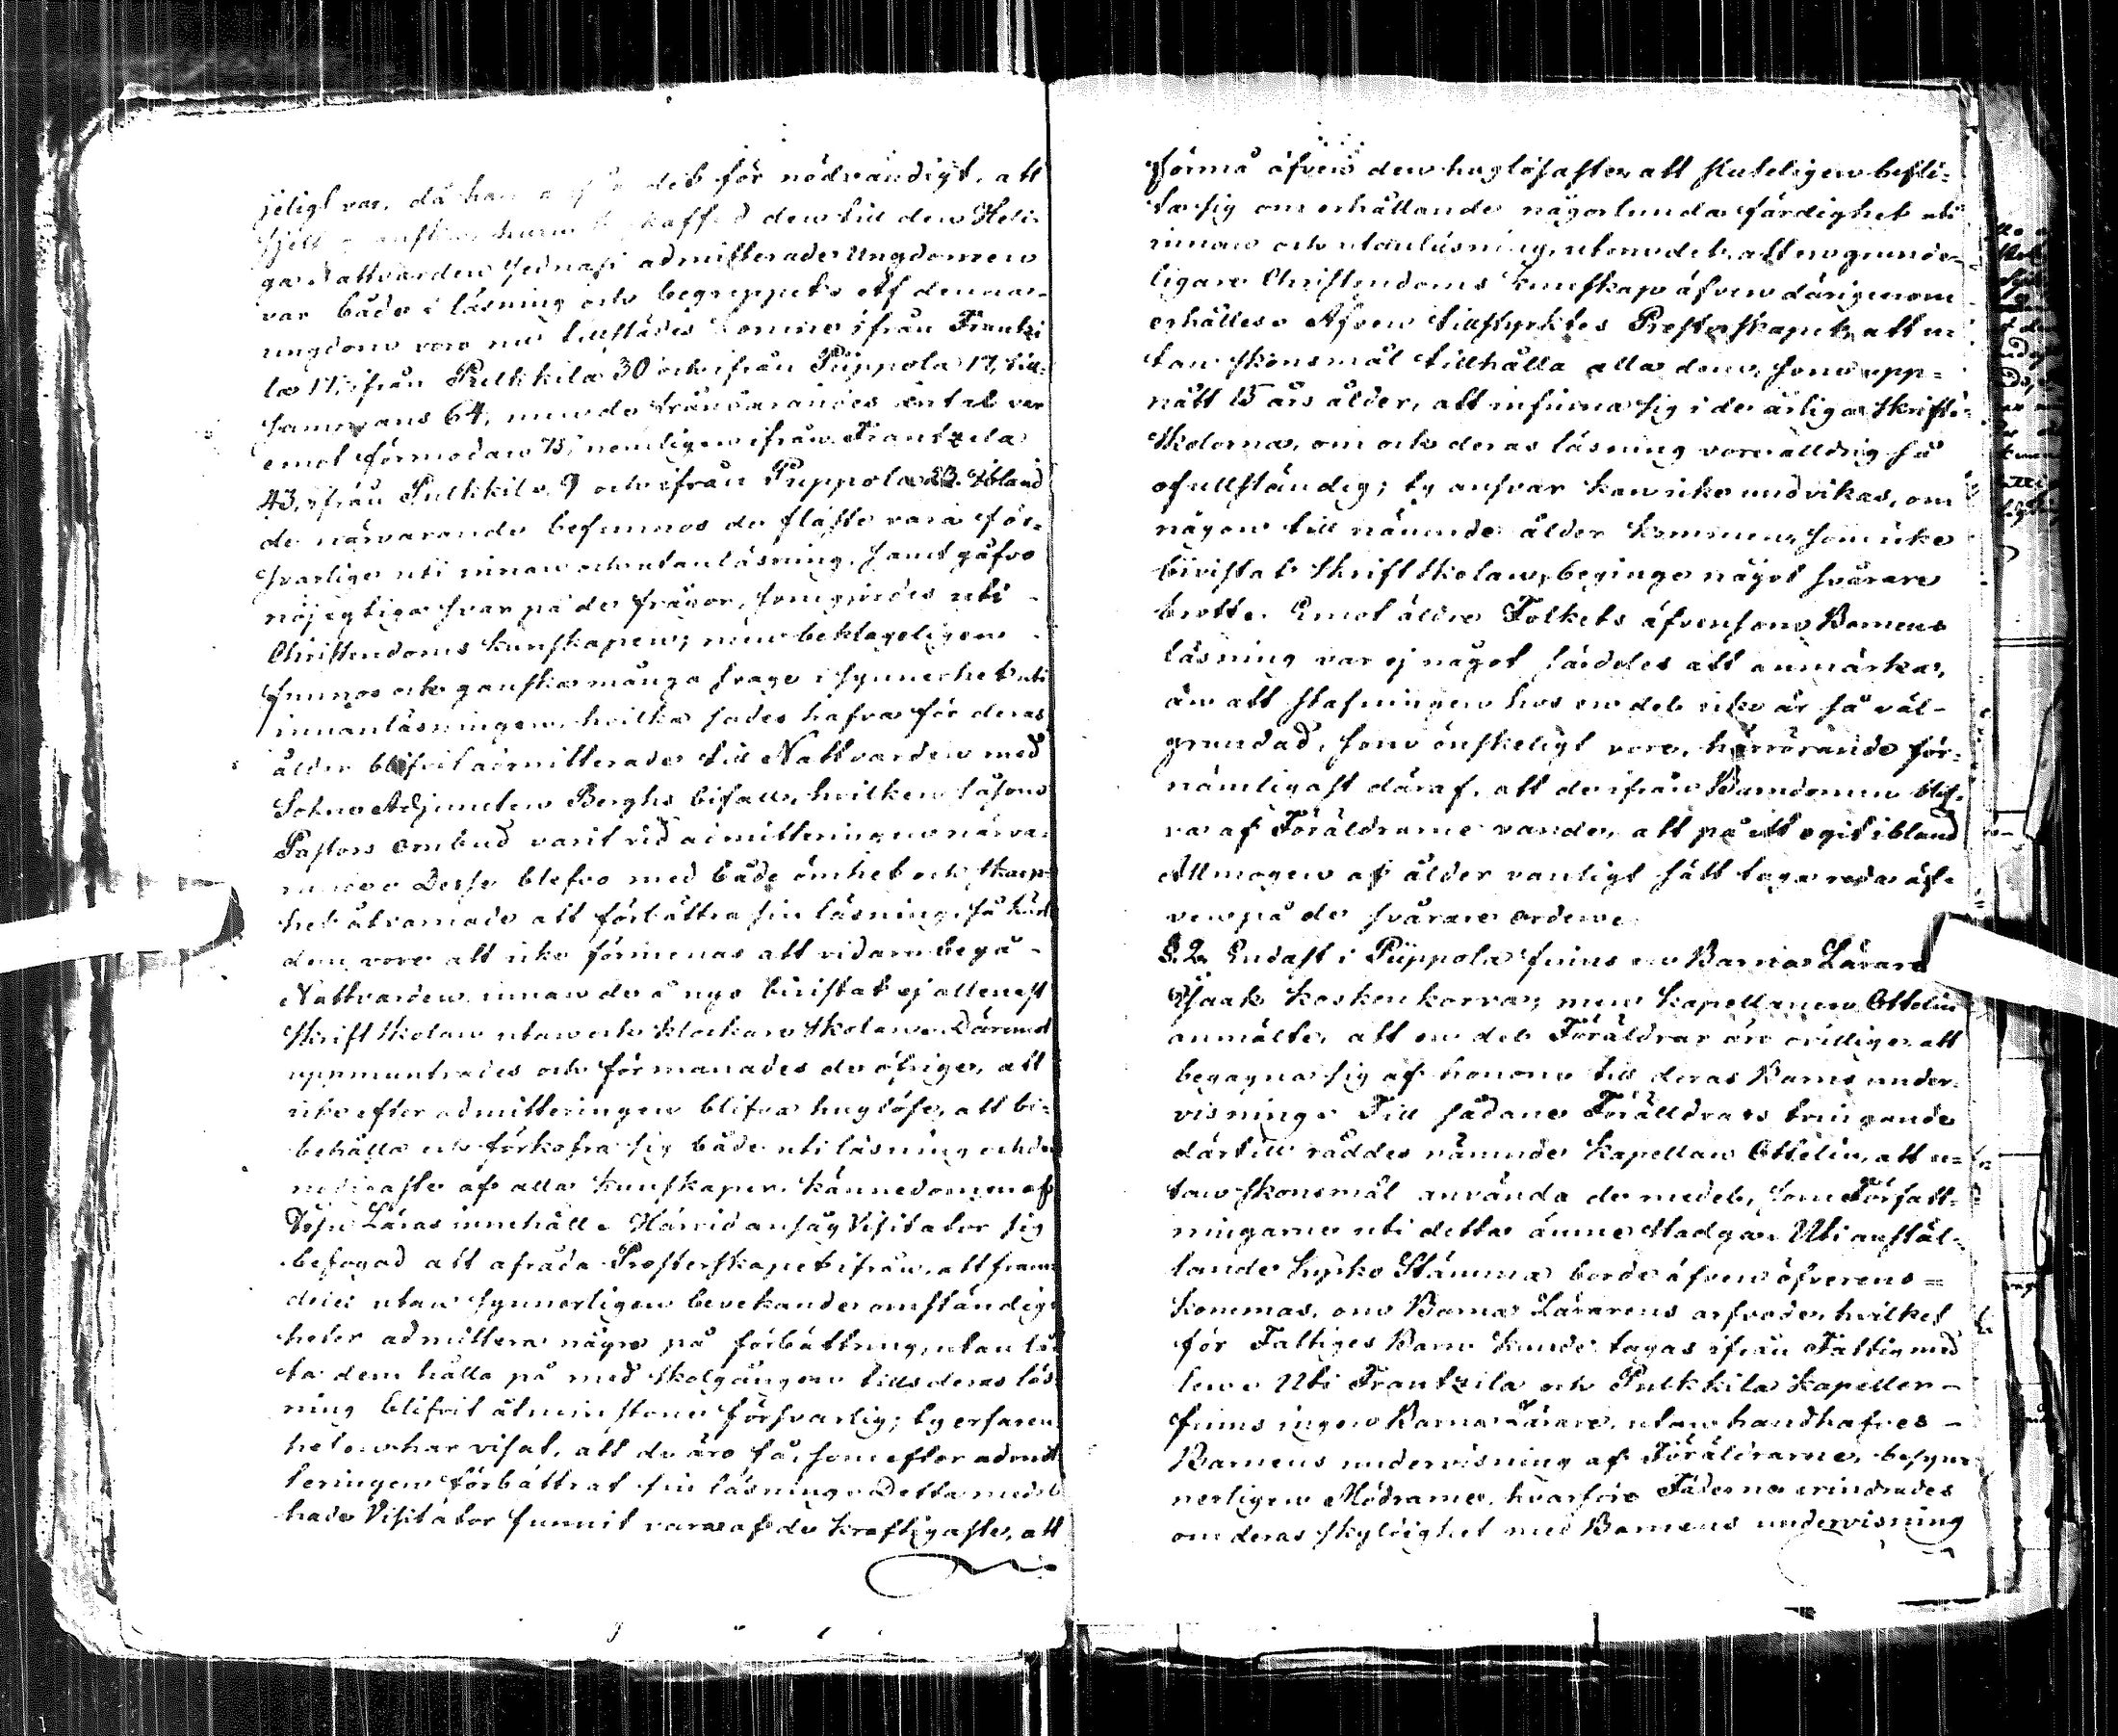 jeligt var, då han det för nödvändigt, att
sjelf huru skaffad den till den Heli-
ga Nattvarden sednast admitterade Ungdomen
var både i läsning och begrepp. Af denna
ungdom voro nu tillstädes komne ifrån Frantzi
la 17, ifrån Pulkkila 30 och ifrån Pippola 17, till-
samans 64, men de frånvarandes antal var
emot förmodan 75, nemligen ifrån Frantzila
43, ifrån Pulkkila 9 och ifrån Pippola 23. Ibland
de närvarande befunnos de fläste vara för-
svarlige uti innan och utanläsning, samt gåfvo
nöjagtiga svar på de frågor, som gjordes uti
Christendoms kunskapen; men beklageligen
funnos och ganska många svage i synnerhet uti
innanläsningen, hvilka sades hafva för deras
ålder blifvit admitterade till Nattvarden med
Sokne Adjuncten Berghs bifall, hvilken såsom
Pastors ombud varit vid admitteringen närva-
rande. Desse blefvo med både ömhet och skarp-
het åtvarnade att förbättra sin läsning, så kärt
dem vore att icke förmenas att vidare begå
Nattvarden, innan de å nyo bivistat ej allenast
Skriftskolan utan och klockare skolan. Därmed
uppmuntrades och förmanades de öfrige, att
icke efter admitteringen blifva huglöse, att bi-
behålla och förkofra sig både uti läsning och den
nödigaste af alla kunskaper, kännedomen af
Jesu Läras innehåll. Härvid ansåg Visitator sig
befogad att afråda Presterskapet ifrån, att fram-
deles utan synnerligen bevekande omständig-
heter admittera några på förbättring, utan lå-
ta dem hålla på med skolgången tills deras läs-
ning blifvit åtminstone försvarlig; ty erfaren-
heten har visat, att de äro få, som efter admit-
teringen förbättrat sin läsning. Detta medel
hade Visitator funnit vara af de kraftigaste, att
förmå äfven den huglösaste, att sluteligen befli-
ta sig om erhållande någorlunda färdighet uti
innan och utanläsning, utom det, att en grund-
ligare Christendoms kunskap äfven därigenom
erhålles. Äfven tillstyrktes Presterskapet, att u-
tan skonsmål tillhålla alla dem, som upp-
nått 15 års ålder, att infinna sig i de årliga Skrift-
skolorna, om och deras läsning vore alldrig så
ofullständig; ty ansvar kan icke undvikas, om
någon till nämnde ålder kommen, som icke
bivistat Skriftskolan, beginge något svårare
brott. Emot äldre Folkets äfvensom Barnens
läsning var ej något särdeles att anmärka,
än att stafningen hos en del icke är så väl-
grundad, som önskeligt vore, härrörande för-
nämligast däraf, att de ifrån Barndomen blif-
va af Föräldrarne vande, att på ett egit ibland
Allmogen af ålder vanligt sätt taga reda äf-
ven på de svårare orden.
§. 2. Endast i Pippola finns en Barna Lärare
Isaak Koskenkorva; men Kapellanen Ottelin
anmälte, att en del Föräldrar äro ovillige att
begagna sig af honom till deras Barns under-
visning. Till sådane Föräldrars tvingande
därtill råddes nämnde Kapellan Ottelin, att u-
tan skonsmål använda de medel, som Författ-
ningarne uti detta ämne stadga. Uti anstäl-
lande Sycko Stämma borde äfven öfverens-
kommas, om Barna Lärarens arfvode, hvilket
för Fattiges Barn kunde tagas ifrån Fattigmed-
len. Uti Frantzila och Pulkkila kapeller
finns ingen Barna Lärare, utan handhafves
Barnens undervisning af Föräldrarne, besyn-
nerligen Mödrarne, hvarföre Fäderna erindrades
om deras skyldighet med Barnens undervisning